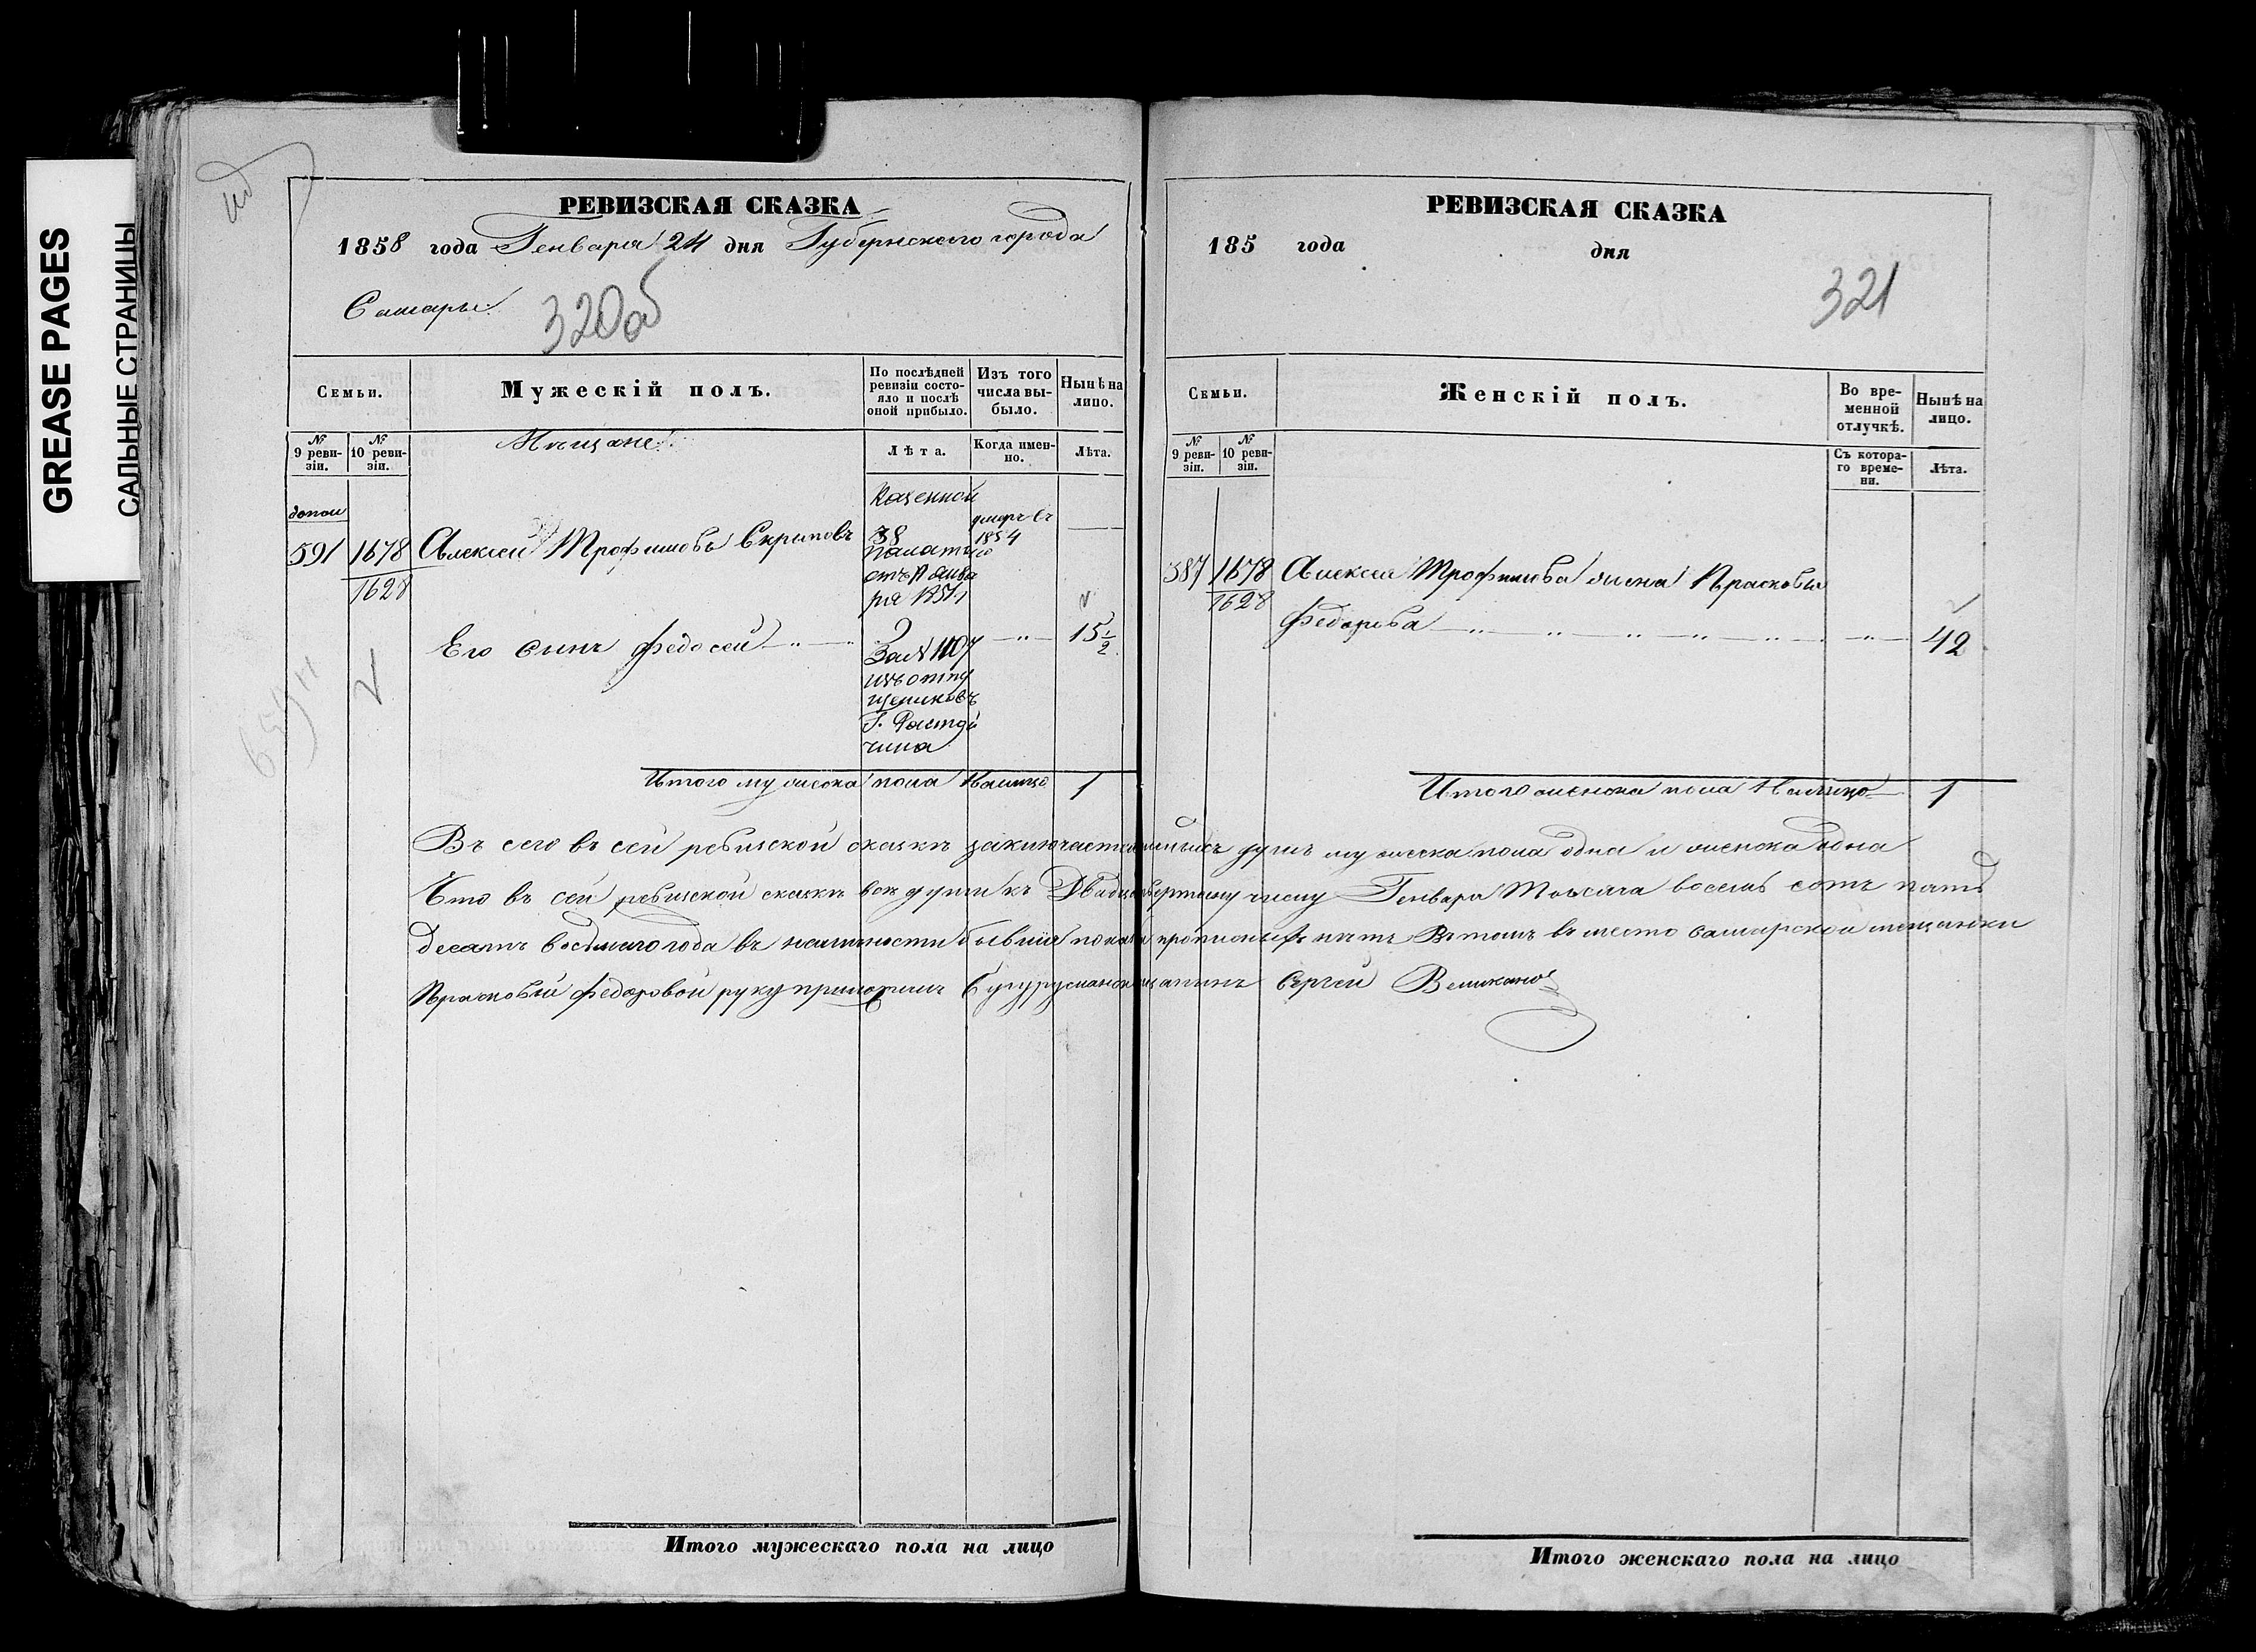 GREASE PAGES
САЛЬНЫЕ СТРАНИЦЫ
РЕВИЗСКАЯ СКАЗКА
1858 года Генваря 24 дня Губернскаго города
Самары
320об
Семьи.
Мужескій полъ.
По послѣдней ревизіи состояло и послѣ оной прибыло.
Изъ того числа выбыло.
Нынѣ на лицо.
№ 9 ревизіи.
№ 10 ревизіи.
Мещане
Лѣта.
Когда именно.
Лѣта.
допол
Казенной
591 1678 Алексей Трофимовъ Скрыповъ 38 умеръ въ 1854
1628
Палаты
отъ
Января 1851
Его сынъ Федосей 9 15 1/2
За № 1107
изъ отпущениковъ
Г. Растопчина
Итого мужеска пола налицо 1
РЕВИЗСКАЯ СКАЗКА
185 года дня
321
Семьи.
Женскій полъ.
Во временной отлучкѣ.
Нынѣ на лицо.
№ 9 ревизіи.
№ 10 ревизіи.
Съ котораго времени.
Лѣта.
387 1678 Алексея Трофимова жена Прасковья
1628
Федорова 42
Итого женска пола налицо 1
Всего въ сей ревизской сказкѣ заключается душъ мужеска пола одна и женска одна
Что въ сей ревизской сказкѣ все души къ Двадцать четвертому числу Генваря Тысяча восемь сотъ пять
десятъ восьмаго года въ наличности бывшія показаны и прописныхъ нѣтъ Въ томъ вместо самарской мещанки
Прасковьи Федоровой руку приложилъ Бугурусланской мещанинъ Сергей Великановъ
Итого мужескаго пола на лицо
Итого женскаго пола на лицо